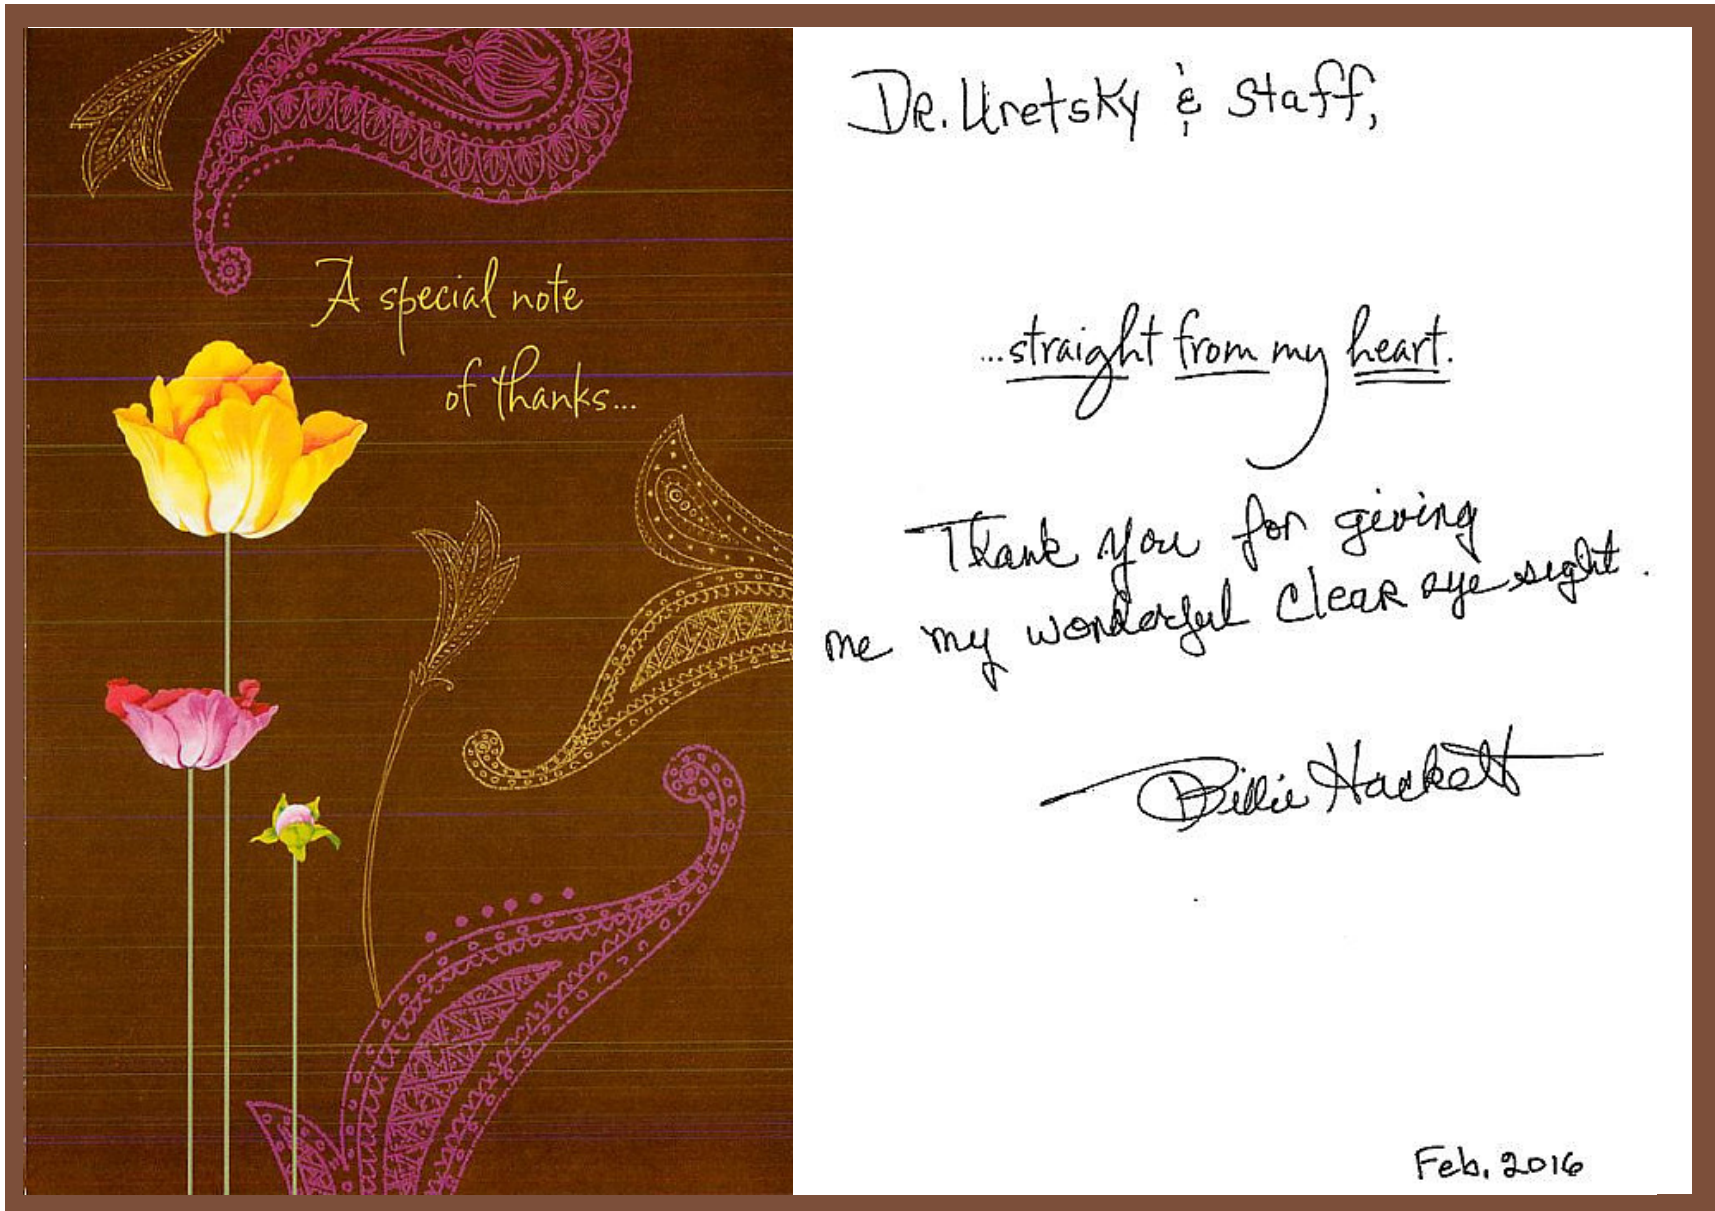 A special note
of thanks...
Dr. Uretsky & Staff,
...straight from my heart.
Thank you for giving
me my wonderful Clear eye sight.
Billie Hackett
Feb. 2016